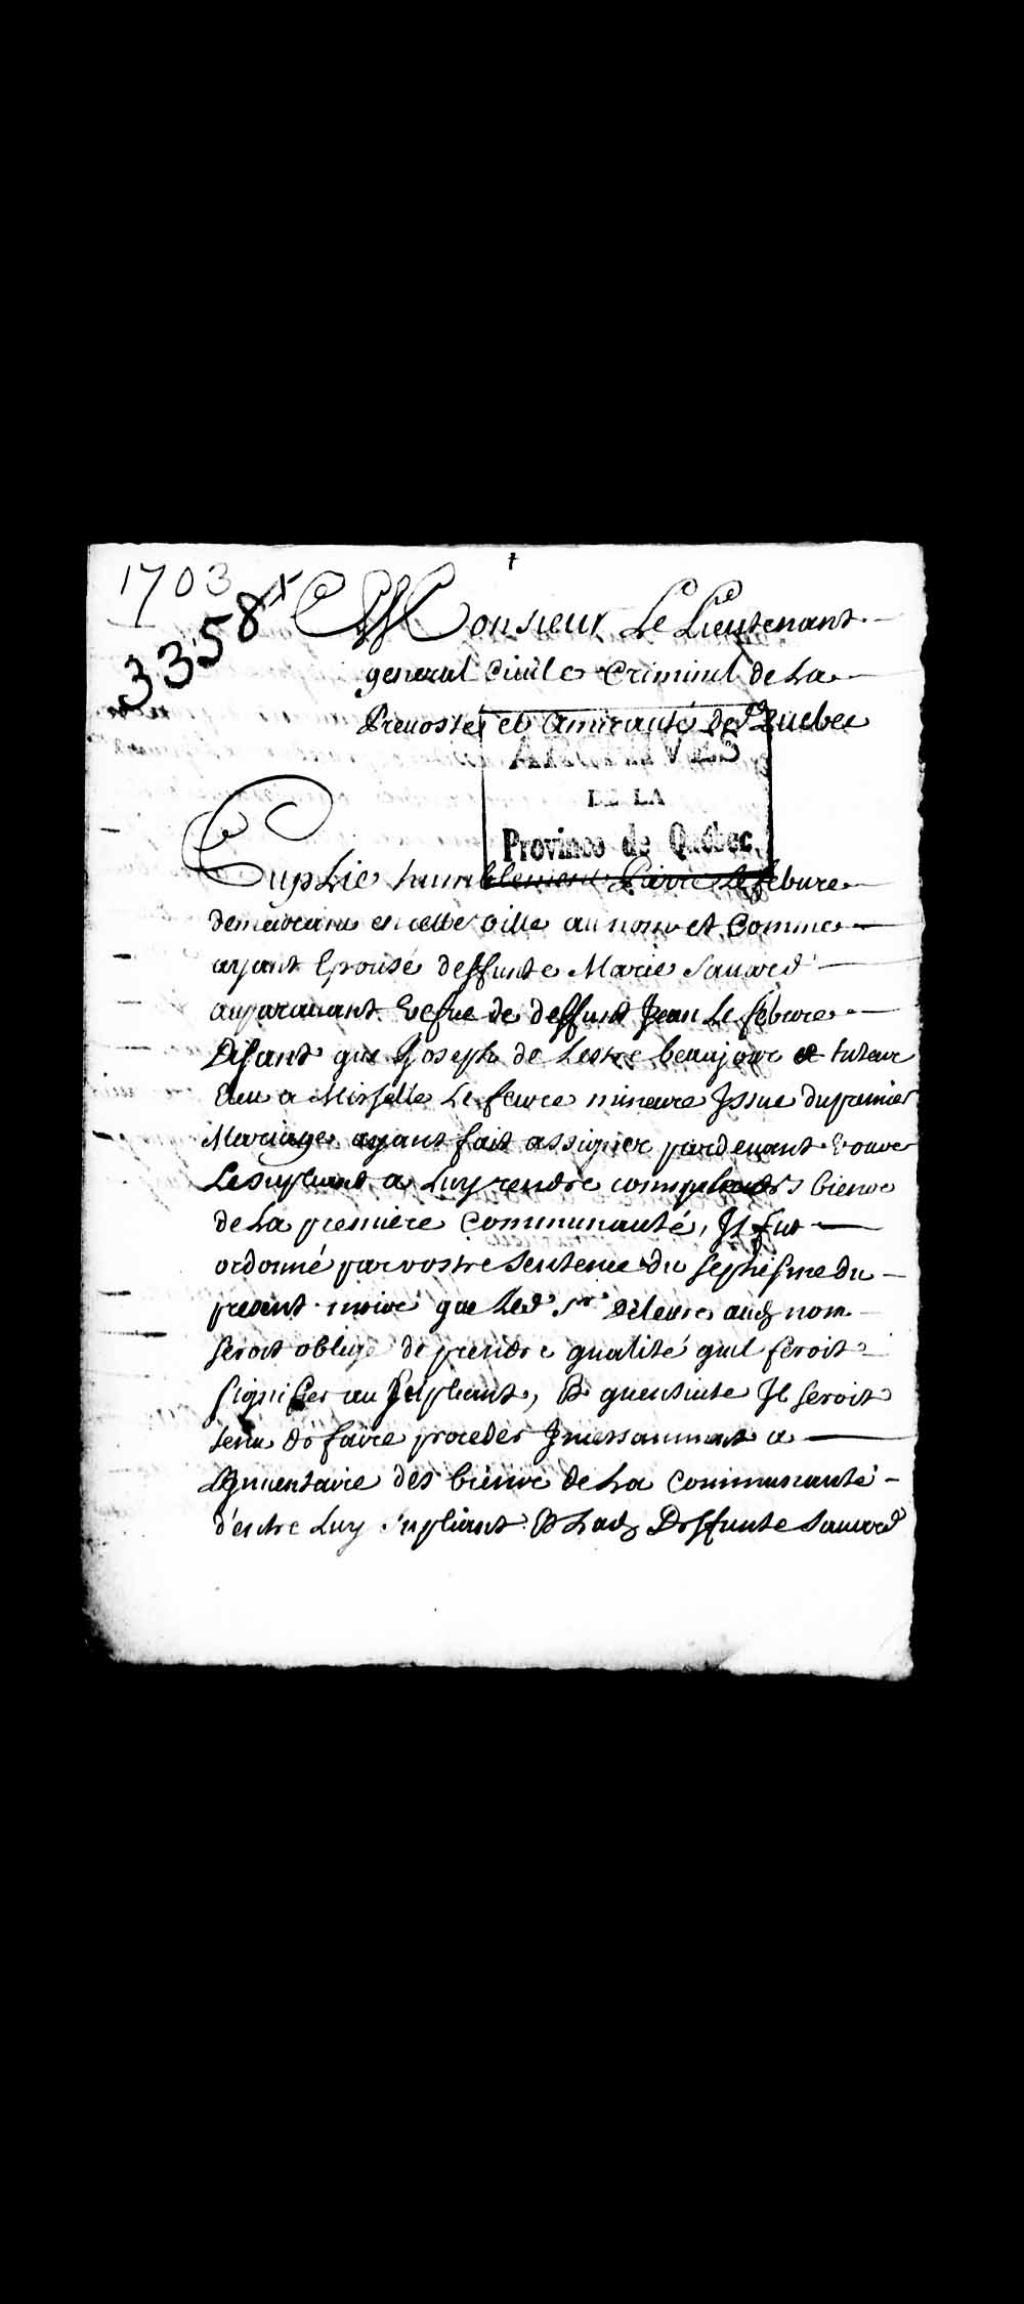 1703
3358
A Monsieur Le Lieutenant
general Ciuil et Criminel de La
Preuosté et Amirauté de Quebec
ARCHIVES
DE LA
Province de Québec
Suplie humblement Pierre Lefebure
demeurant en cette ville au nom et Comme
ayant Epousé deffunte Marie Sauard
auparauant Vefue de deffunt Jean Lefebure
Disant que Joseph de Lestre beaujour tuteur
Eleu a Lefeure mineure Jssue du premier
Mariage ayant fait assigner pardeuant vous
Le supliant a Luy rendre compte des biens
de La premiere Communauté, Jl fut
ordonné par vostre Sentence du septiesme du
present mois que Led. Sr. Delestre aud nom
seroit obligé de prendre qualité quil feroit
signifier au supliant, Et quensuite Jl seroit
tenu de faire proceder Jncessamment a
LJnuentaire des biens de La Communauté
d'entre Luy supliant Et Lad Deffunte Sauard